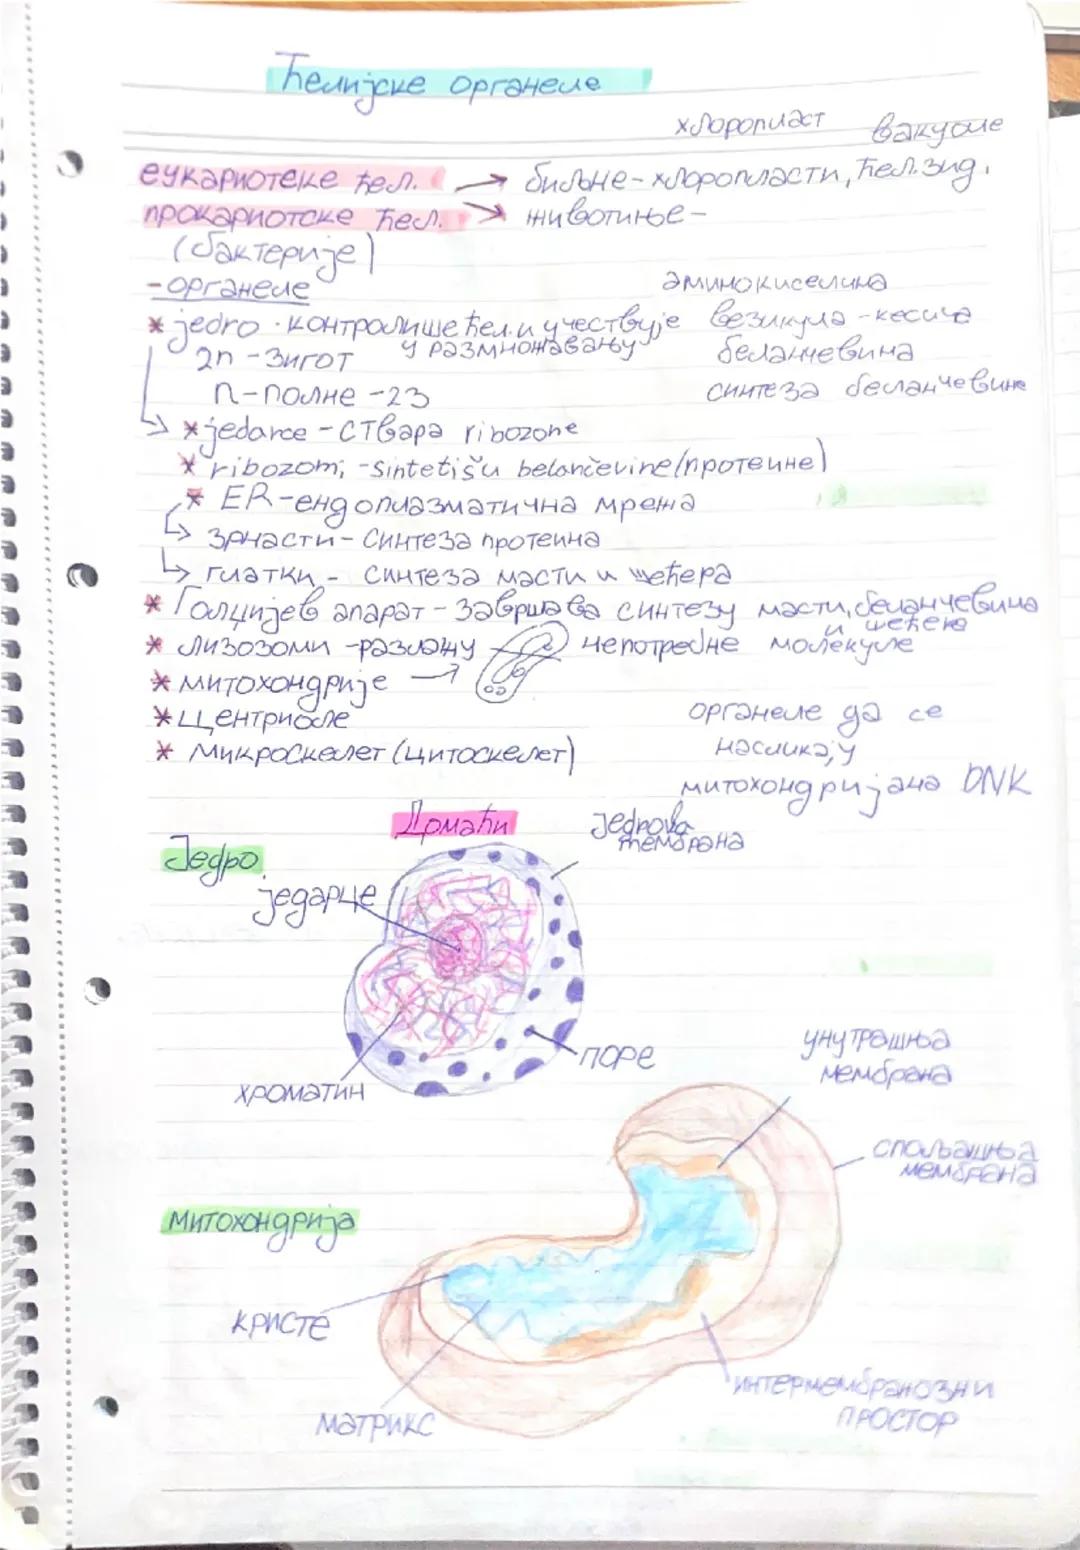 Ћелијске органеле
хлоропласт вакуоле
еукариотске ћел. → биљне - хлоропласти, ћел. зид.
прокариотске ћел. → животиње -
(бактерије)
- органеле
аминокиселина
* jedro - контролише ћел. и учествује
у размножавању
везикула - кесица
2n - зигот
беланчевина
n - полне - 23
синтеза беланчевине
↳ * jedarce - ствара ribozone
* ribozomi - sintetišu belančevine (протеине)
* ER - ендоплазматична мрежа
↳ зрнасти - синтеза протеина
↳ глатки - синтеза масти и шећера
* Голџијев апарат - завршава синтезу масти, беланчевина
и шећера
* лизозоми - разлажу непотребне молекуле
* митохондрије →
* центриоле
* микроскелет (цитоскелет)
органеле да се
насликају
митохондријана DNK
Домаћи
Једро
једрова
мембрана
једарце
поре
хроматин
унутрашња
мембрана
спољашња
мембрана
митохондрија
кристе
матрикс
интермембранозни
простор